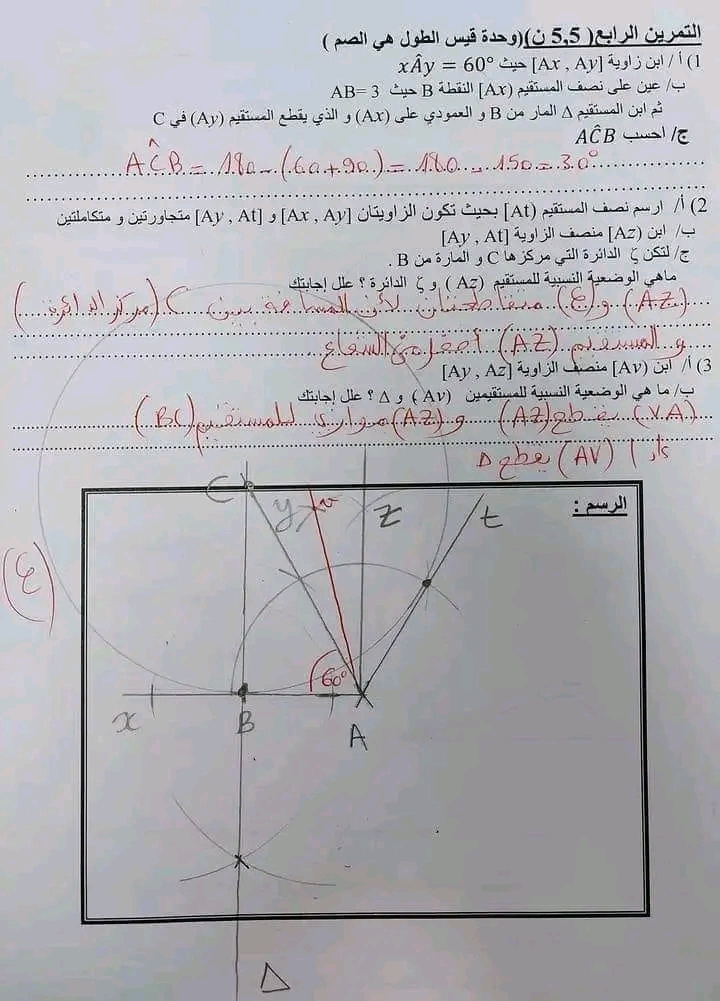 التمرين الرابع( 5,5 ن)(وحدة قيس الطول هي الصم )
1) أ/ ابن زاوية [Ax , Ay] حيث xÂy = 60°
ب/ عين على نصف المستقيم (Ax] النقطة B حيث AB= 3
ثم ابن المستقيم Δ المار من B و العمودي على (Ax) و الذي يقطع المستقيم (Ay) في C
ج/ احسب AĈB
AĈB = 180 - (60+90) = 180 - 150 = 30°
2) أ/ ارسم نصف المستقيم (At] بحيث تكون الزاويتان [Ax , Ay] و [Ay , At] متجاورتين و متكاملتين
ب/ ابن (Az] منصف الزاوية [Ay , At]
ج/ لتكن ζ الدائرة التي مركزها C و المارة من B .
ماهي الوضعية النسبية للمستقيم (Az) و ζ الدائرة ؟ علل إجابتك
(AZ) و (ع) متقاطعتان لأن المسافة بين C (مركز الدائرة)
و المستقيم (AZ) أصغر من الشعاع
3) أ/ ابن (Av] منصف الزاوية [Ay , Az]
ب/ ما هي الوضعية النسبية للمستقيمين (Av) و Δ ؟ علل إجابتك
(VA) يقطع (AZ) و (AZ) موازي للمستقيم (BC)
إذا (AV) يقطع Δ
الرسم :
C
y
v
z
t
(ع)
60°
x
B
A
Δ